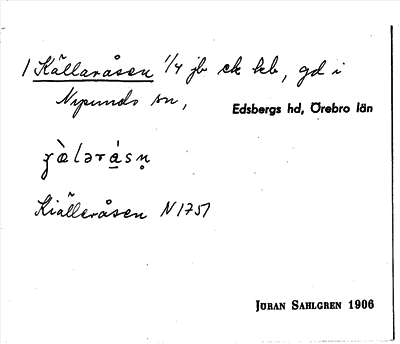 1 Källaråsen 1/4 jb ek kb, gd i
Nysunds sn, Edsbergs hd, Örebro län
Kiälleråsen N 1751
JÖRAN SAHLGREN 1906